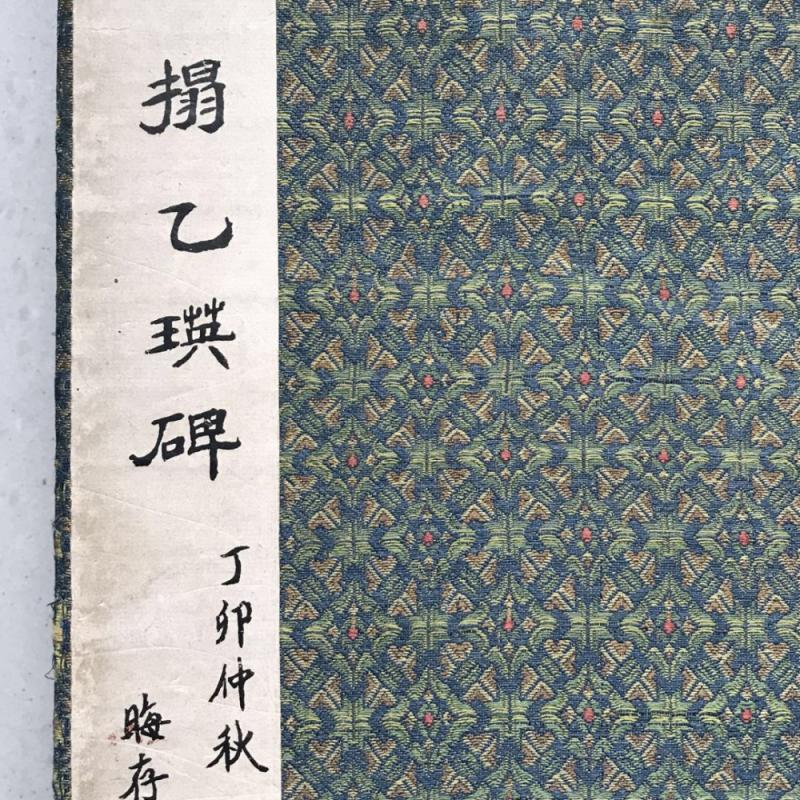 搨乙瑛碑
丁卯仲秋
晦存